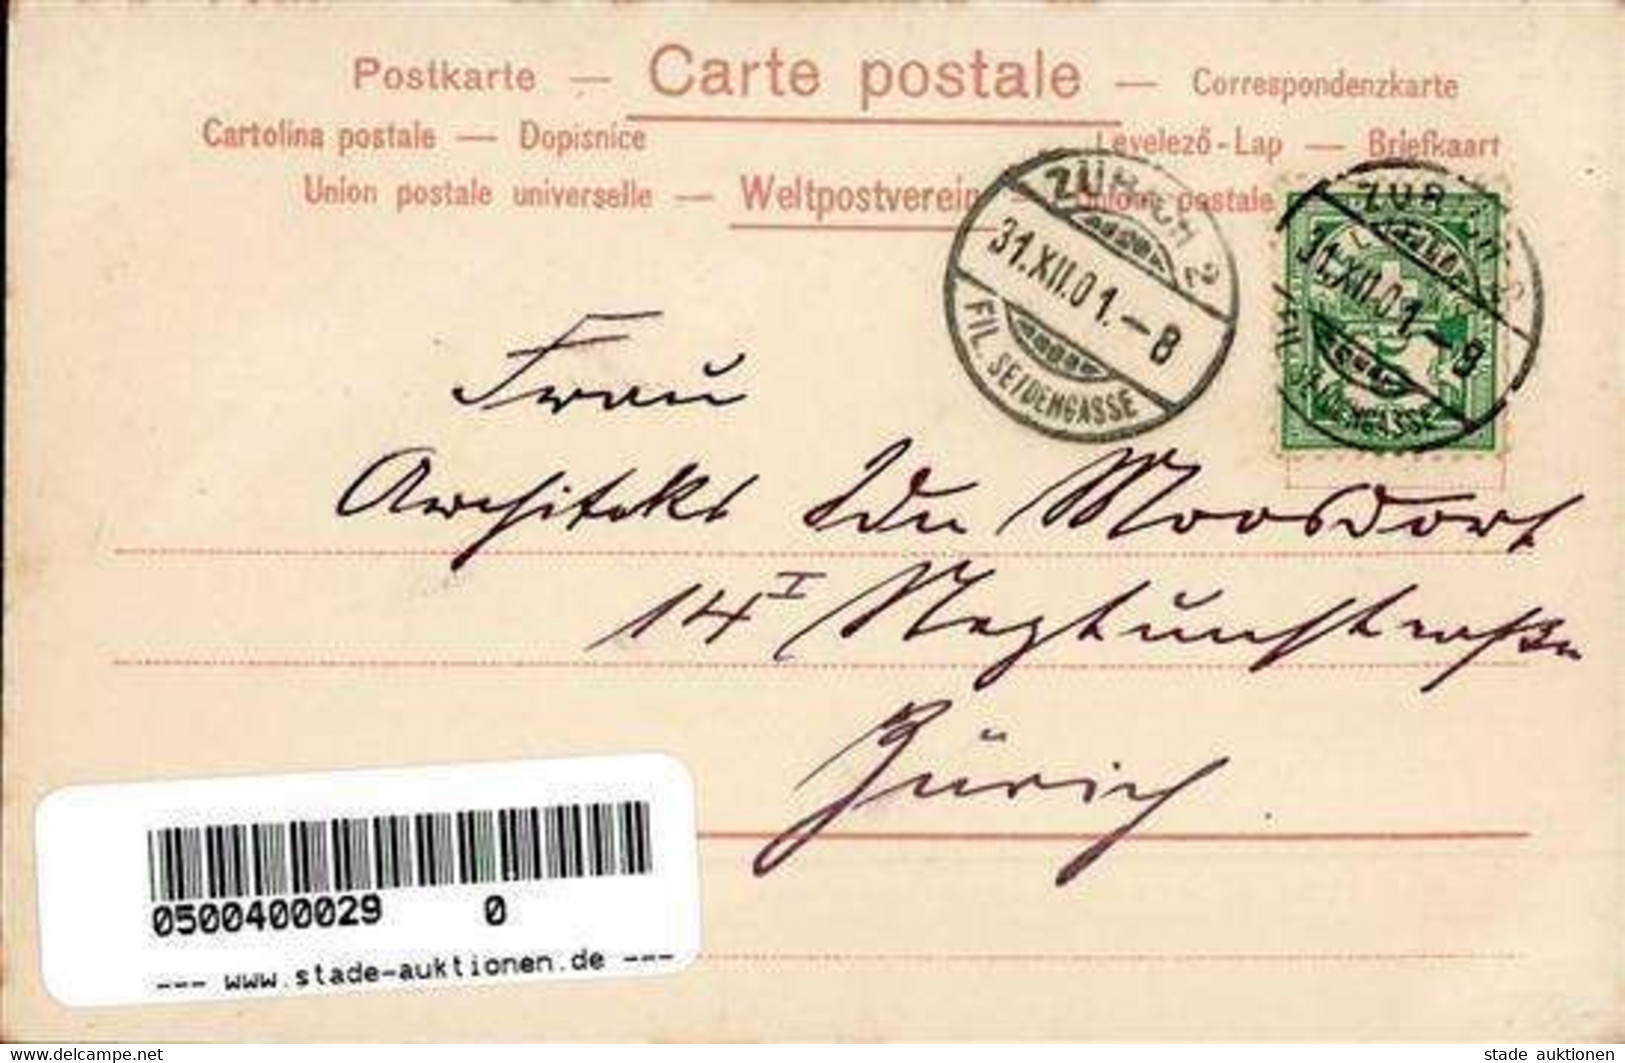 Postkarte — Carte postale — Correspondenzkarte
Cartolina postale — Dopisnice Levelező-Lap — Briefkaart
Union postale universelle — Weltpostverein — Union postale
ZÜRICH 2
31.XII.01.–8
FIL. SEIDENGASSE
ZÜRICH 2
31.XII.01–8
FIL. SEIDENGASSE
Frau
Architekt Moosdorf
14 I Neptunstraße
Zürich.
0500400029 0
--- www.stade-auktionen.de ---
www.delcampe.net
stade auktionen